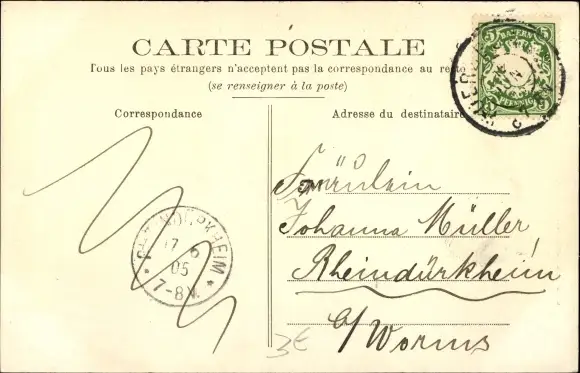 CARTE POSTALE
Tous les pays étrangers n'acceptent pas la correspondance au
(se renseigner à la poste)
Correspondance
Adresse du destinataire
5 BAYERN 5
PFENNIG
Fräulein
Johanna Müller,
Rheindürkheim
b/Worms
RHEINDÜRKHEIM
17 6
05
7-8V.
3€